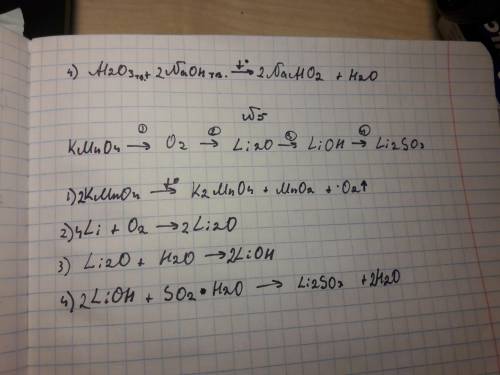 4) Al2O3тв. + 2NaOHтв. →t° 2NaAlO2 + H2O
№5
KMnO4 →① O2 →② Li2O →③ LiOH →④ Li2SO3
1) 2KMnO4 →t° K2MnO4 + MnO2 + O2↑
2) 4Li + O2 → 2Li2O
3) Li2O + H2O → 2LiOH
4) 2LiOH + SO2 • H2O → Li2SO3 + 2H2O